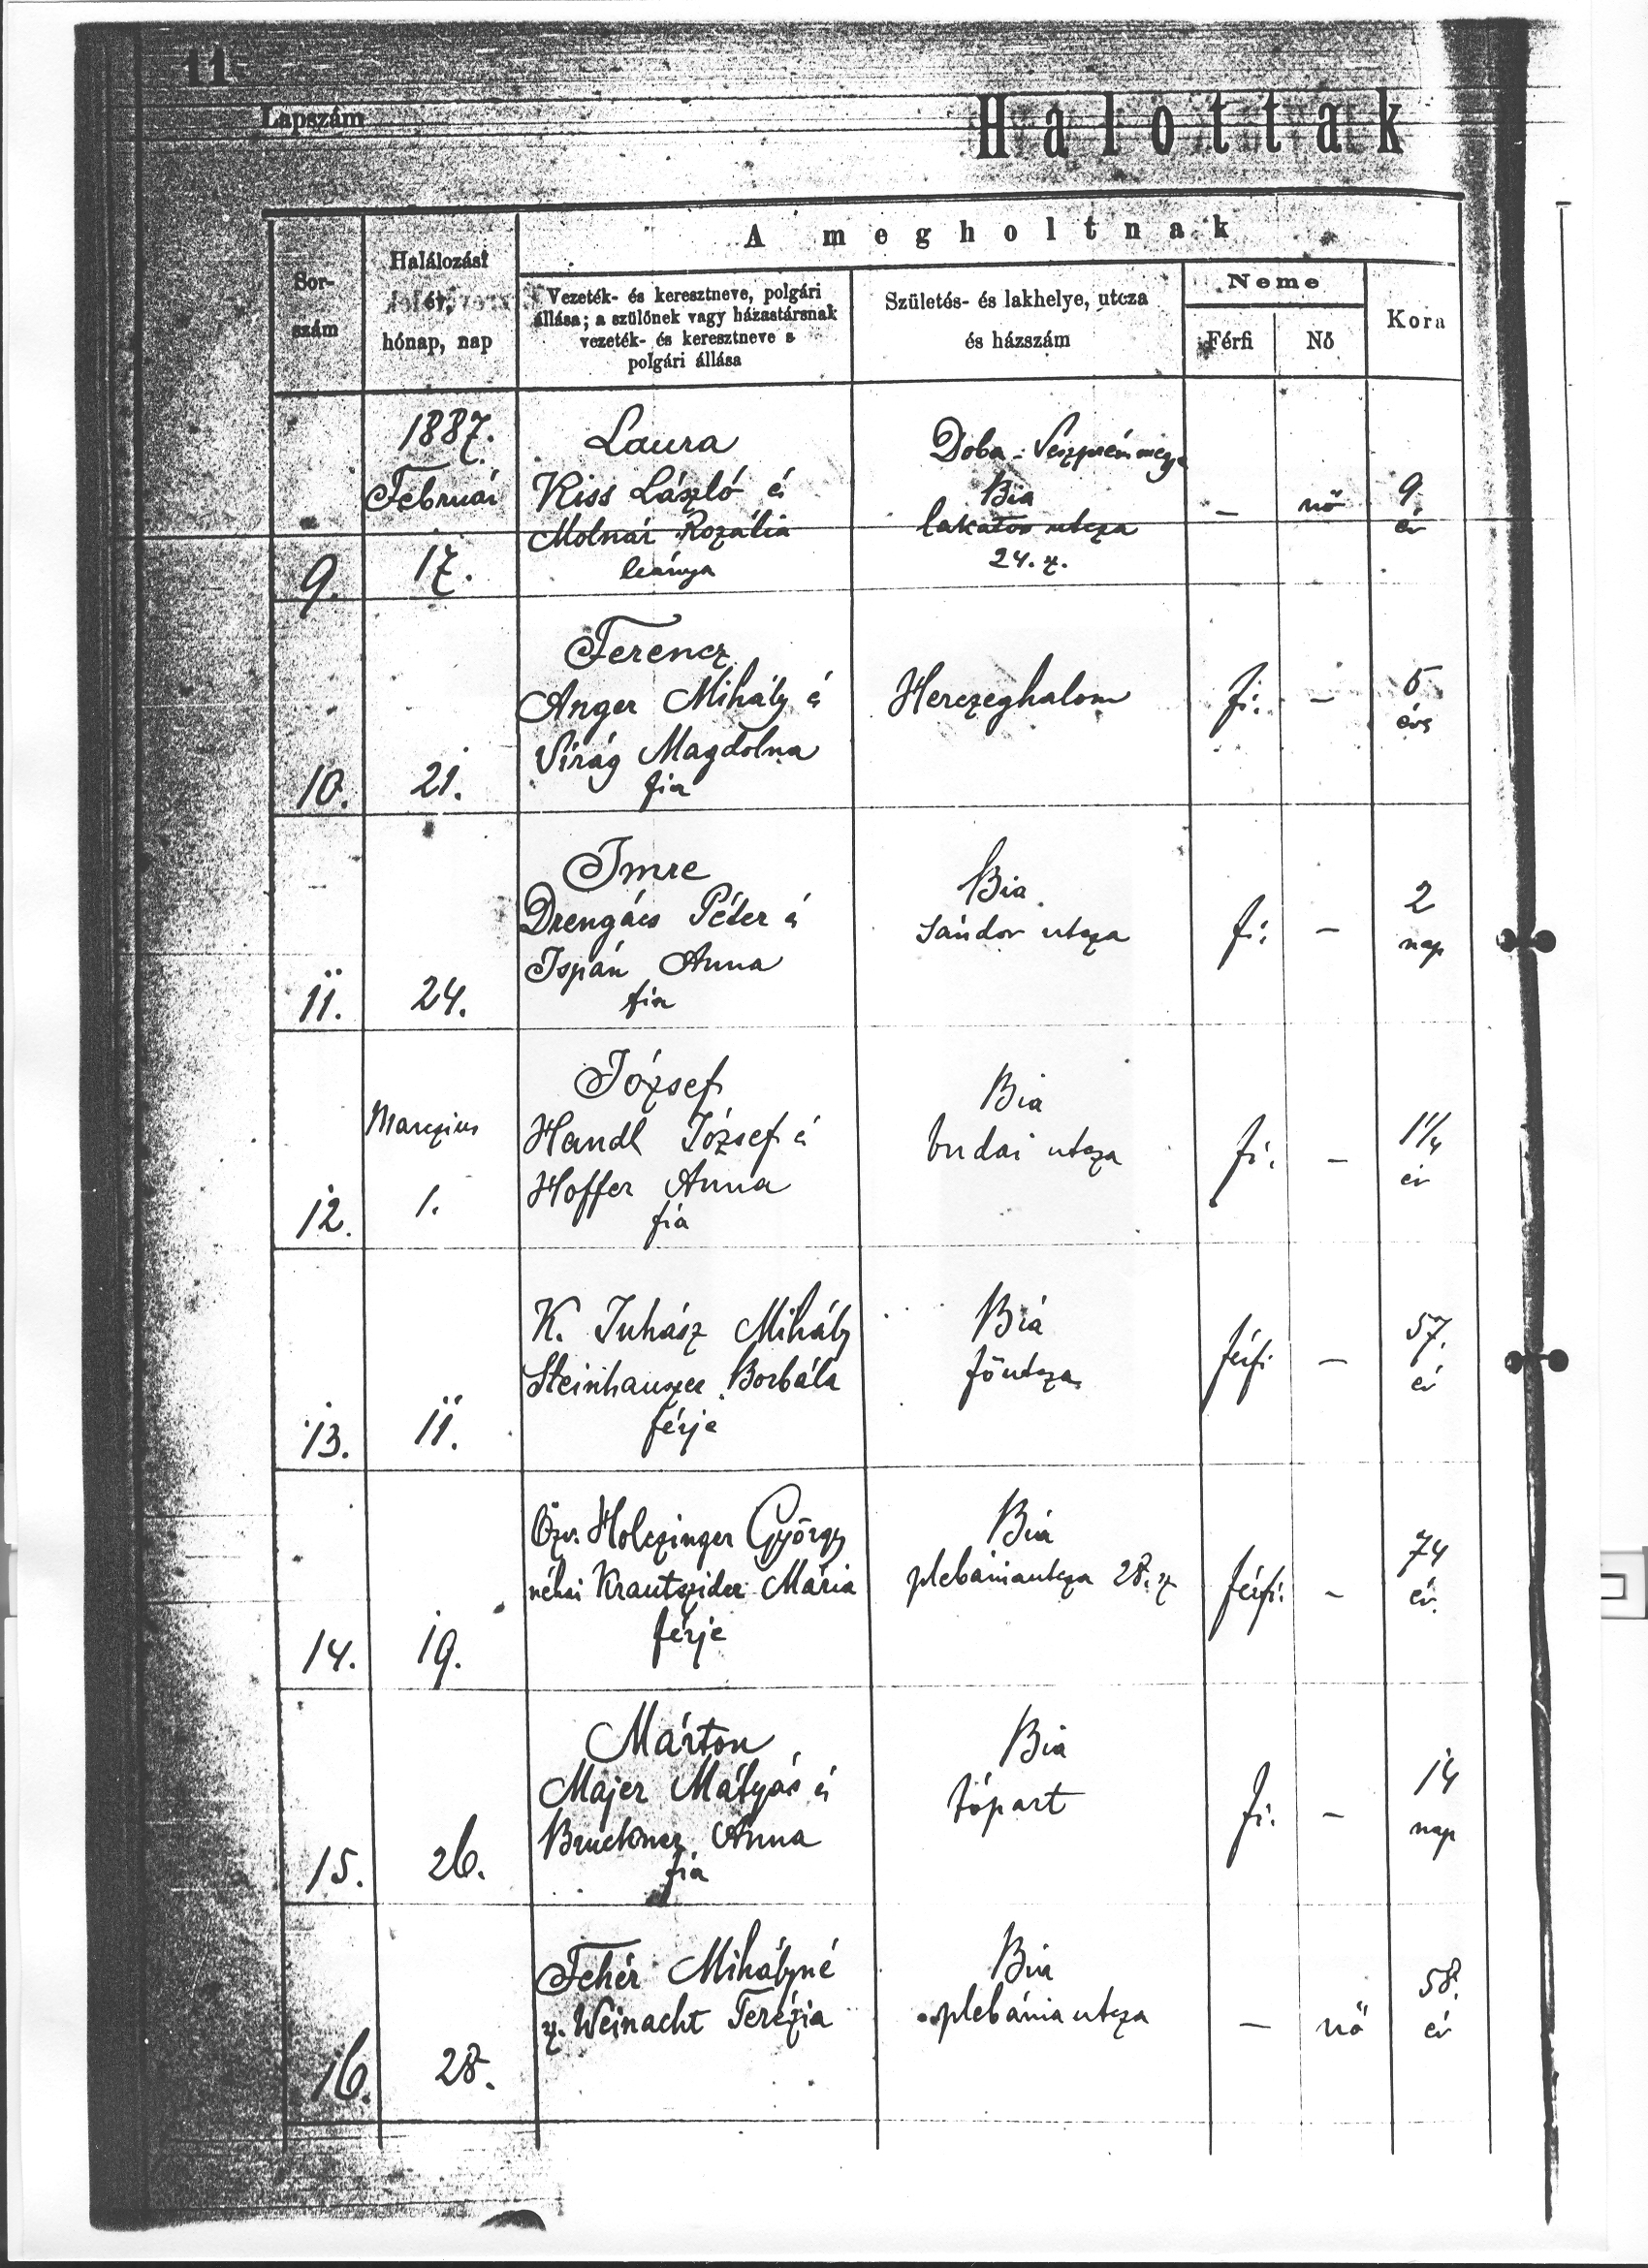 11
Lapszám
Halottak
A megholtnak
Sor-
szám
Halálozási
év,
hónap, nap
Vezeték- és keresztneve, polgári
állása; a szülőnek vagy házastársnak
vezeték- és keresztneve s
polgári állása
Születés- és lakhelye, utcza
és házszám
Neme
Férfi
Nő
Kora
1887.
Február
9.
17.
Laura
Kiss László és
Molnár Rozália
leánya
Doba - Veszprém megye
Bia
lakatos utcza
24. sz.
–
nő
9
év
10.
21.
Ferencz
Anger Mihály és
Virág Magdolna
fia
Herczeghalom
fi.
–
5
éves
11.
24.
Imre
Drengács Péter és
Ispán Anna
fia
Bia
Sándor utcza
fi.
–
2
nap
Marczius
12.
1.
József
Handl József és
Hoffer Anna
fia
Bia
budai utcza
fi.
–
1 1/4
év
13.
11.
K. Juhász Mihály
Steinhauser Borbála
férje
Bia
főutcza
férfi
–
57.
év
14.
19.
Özv. Holczinger György
néhai Krautszider Mária
férje
Bia
plebániautcza 28. sz
férfi.
–
74
év.
15.
26.
Márton
Majer Mátyás és
Bruckner Anna
fia
Bia
tópart
fi.
–
14
nap
16.
28.
Fehér Mihályné
sz. Weinacht Terézia
Bia
plebánia utcza
–
nő
58.
év